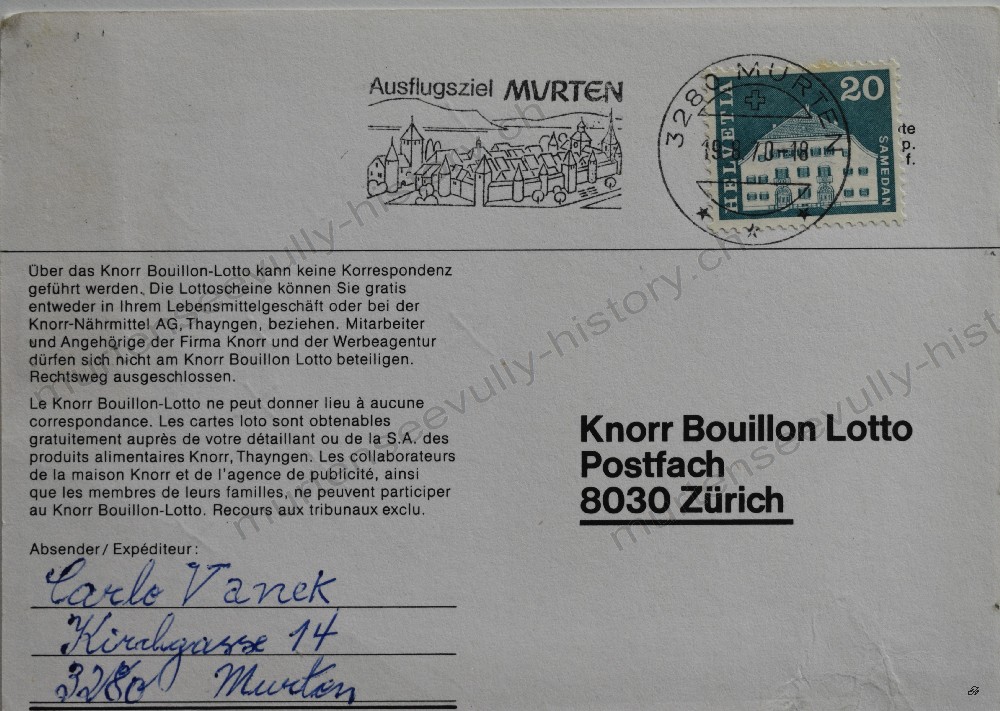 Ausflugsziel MURTEN
3280 MURTEN
19.8.70-18
HELVETIA
20
SAMEDAN
rte
p.
f.
Über das Knorr Bouillon-Lotto kann keine Korrespondenz
geführt werden. Die Lottoscheine können Sie gratis
entweder in Ihrem Lebensmittelgeschäft oder bei der
Knorr-Nährmittel AG, Thayngen, beziehen. Mitarbeiter
und Angehörige der Firma Knorr und der Werbeagentur
dürfen sich nicht am Knorr Bouillon Lotto beteiligen.
Rechtsweg ausgeschlossen.
Le Knorr Bouillon-Lotto ne peut donner lieu à aucune
correspondance. Les cartes loto sont obtenables
gratuitement auprès de votre détaillant ou de la S.A. des
produits alimentaires Knorr, Thayngen. Les collaborateurs
de la maison Knorr et de l'agence de publicité, ainsi
que les membres de leurs familles, ne peuvent participer
au Knorr Bouillon-Lotto. Recours aux tribunaux exclu.
Knorr Bouillon Lotto
Postfach
8030 Zürich
Absender/Expéditeur:
Carlo Vanek
Kirchgasse 14
3280 Murten
murtenseevully-history.ch
murtenseevully-history.ch
murtenseevully-hist